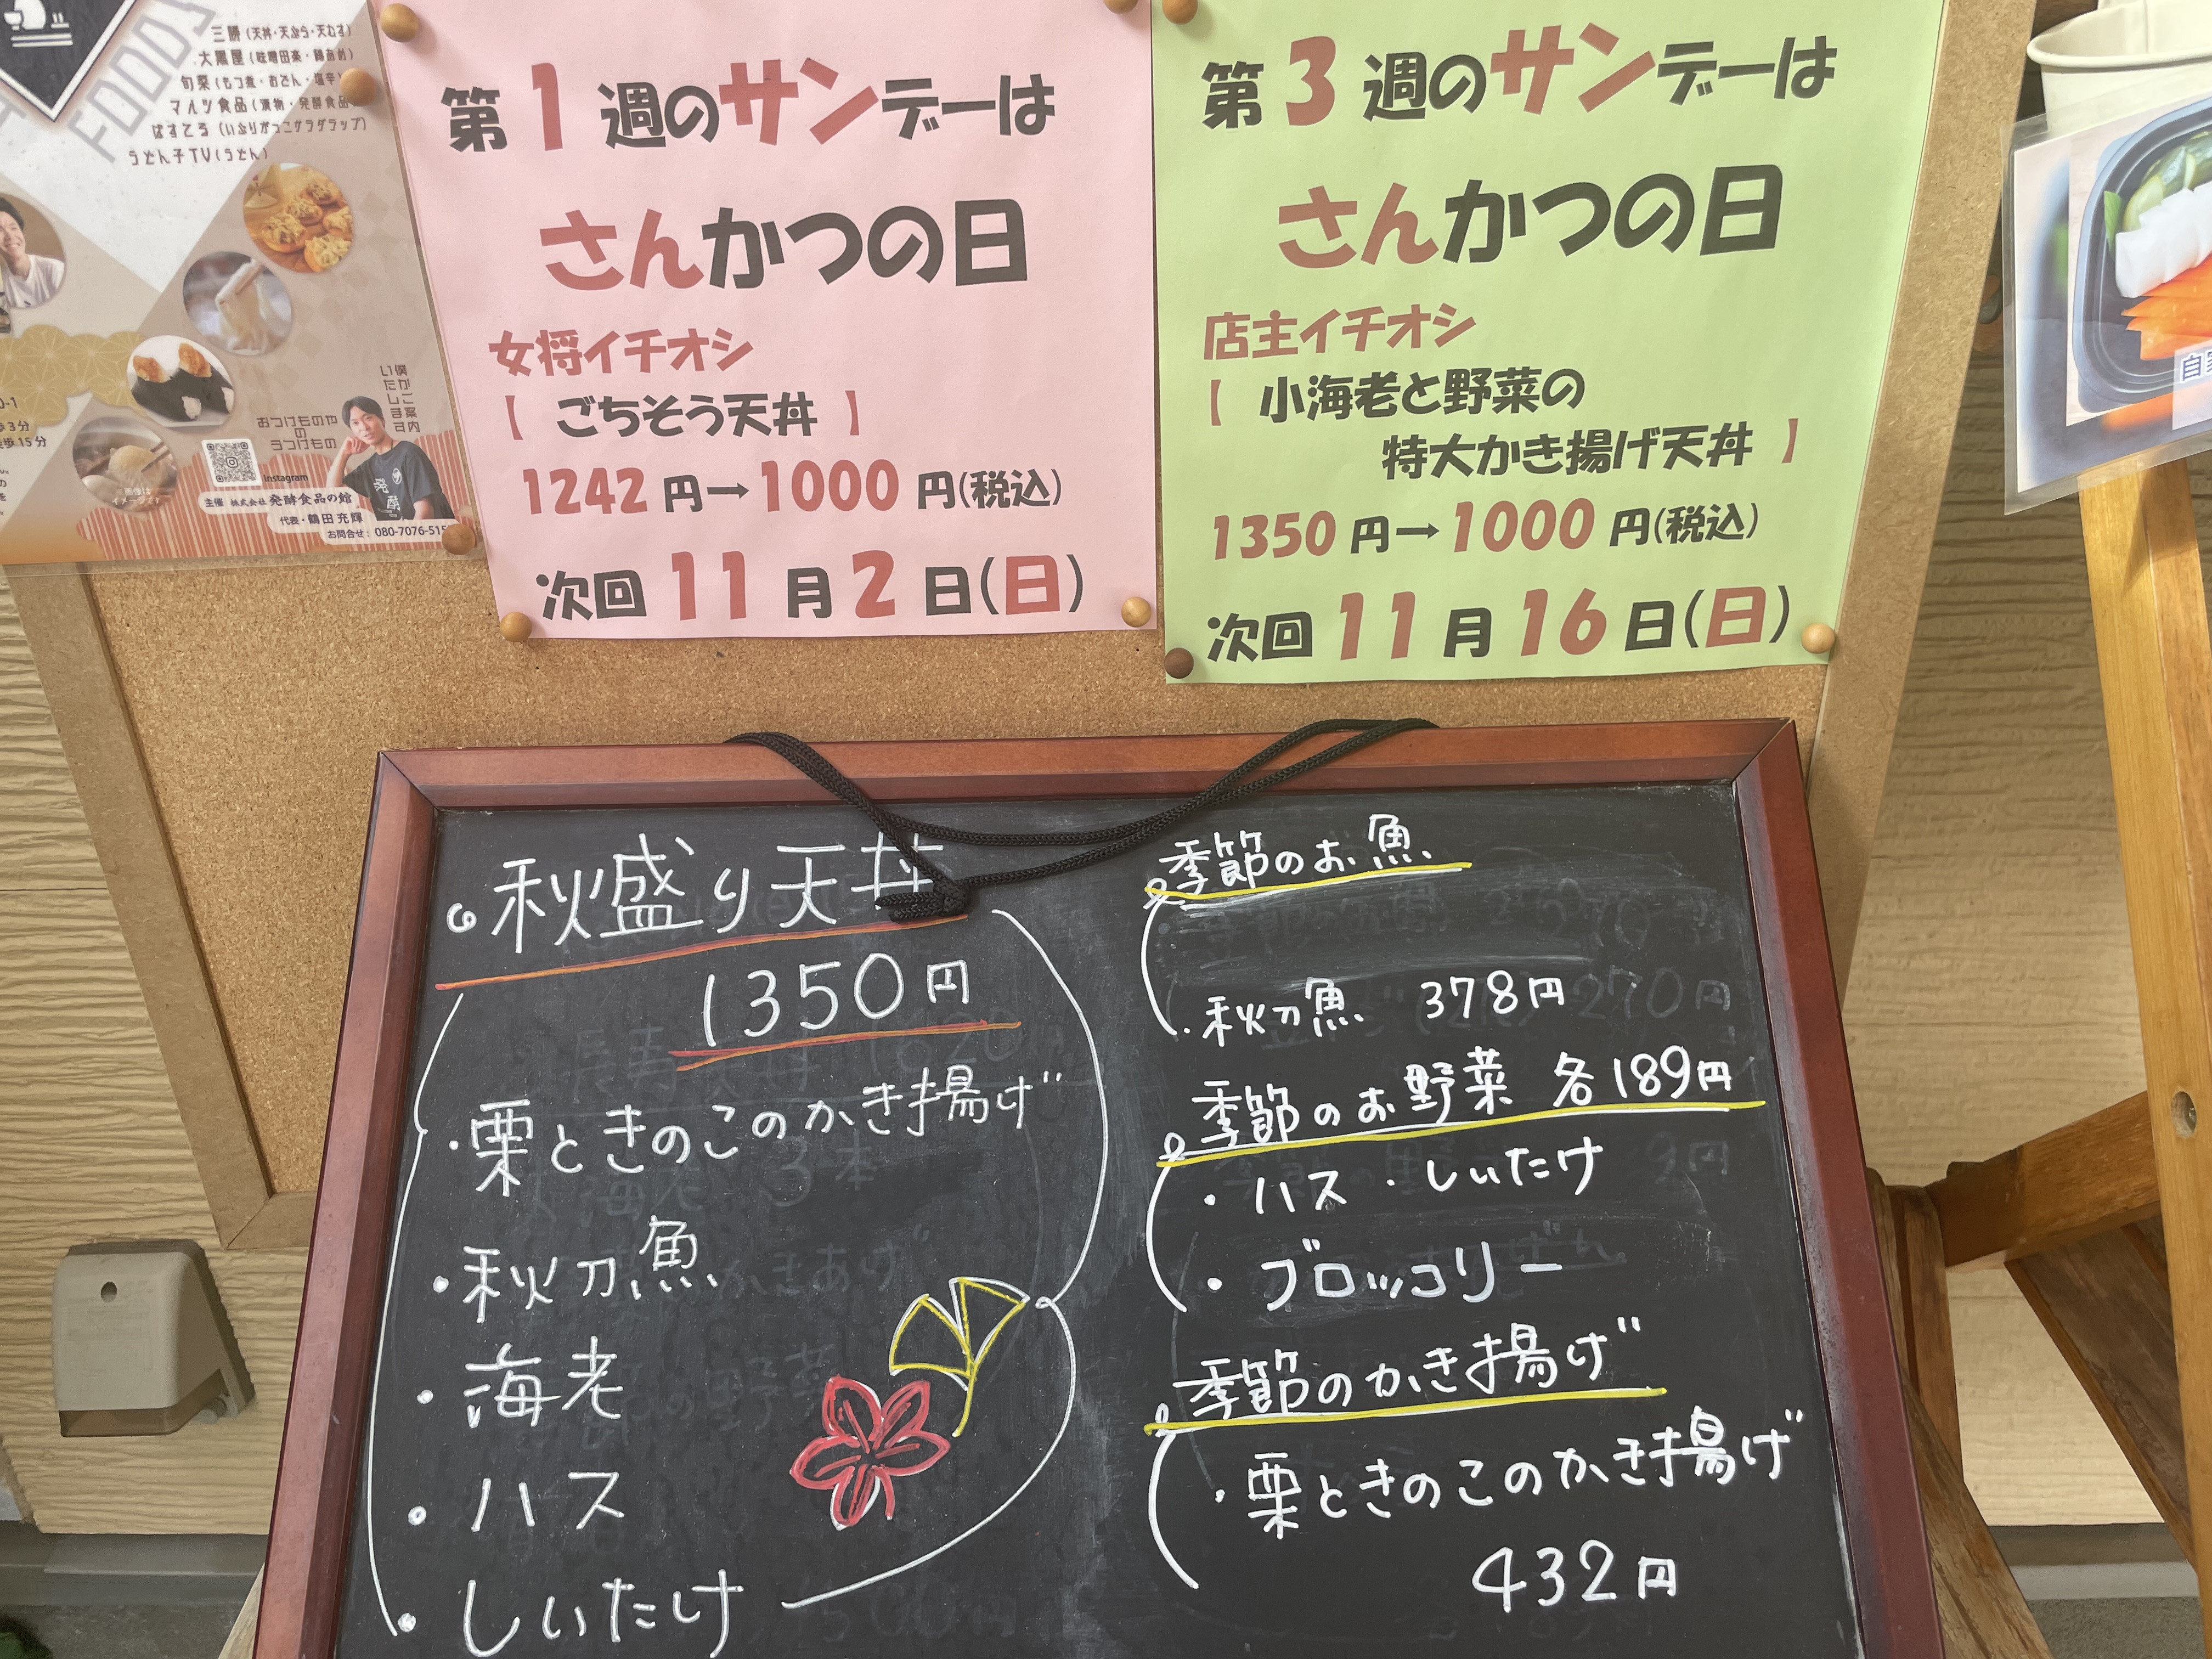 FOODS
三勝(天丼・天ぷら・天むす)
大黒屋(味噌田楽・鶏あめ)
旬菜(もつ煮・おでん・塩辛)
マルツ食品(漬物・発酵食品
はすてろ(いぶりがっこサラダラップ)
うどん子TV(うどん)
僕がご案内
いたします
おつけものや
の
うつけもの
Instagram
主催 株式会社 発酵食品の館
代表・鶴田 充輝
お問合せ: 080-7076-515
0-1
歩3分
歩15分
画像は
イメージです
発酵
第1週のサンデーは
さんかつの日
女将イチオシ
【 ごちそう天丼 】
1242円→1000円(税込)
次回 11月2日(日)
第3週のサンデーは
さんかつの日
店主イチオシ
【 小海老と野菜の
特大かき揚げ天丼 】
1350円→1000円(税込)
次回 11月16日(日)
自家
秋盛り天丼
1350円
・栗ときのこのかき揚げ
・秋刀魚
・海老
・ハス
・しいたけ
季節のお魚
・秋刀魚 378円
季節のお野菜 各189円
・ハス ・しいたけ
・ブロッコリー
季節のかき揚げ
・栗ときのこのかき揚げ
432円